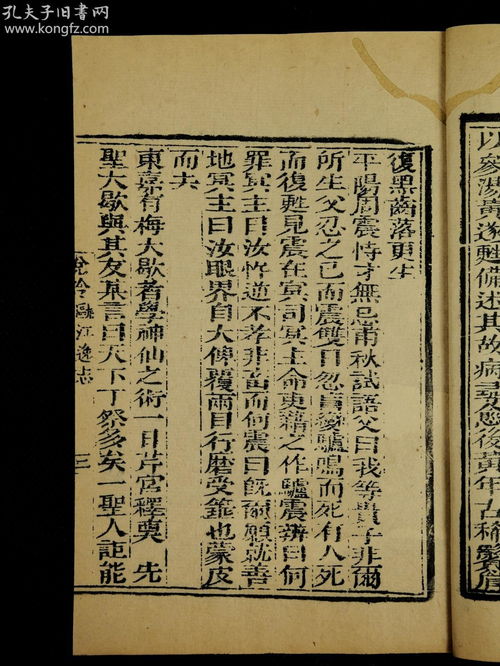 孔夫子旧书网
www.kongfz.com
以參湯遂甦備述其故病愈後黃年古稀鬢
復黑齒落更生
平陽周震恃才無忌甫秋試語父曰我等貴子非爾
所生父忍之已而震雙目忽盲發驢鳴而死有人死
而復甦見震在冥司冥主命吏籍之作驢震辨曰何
罪冥主曰汝忤逆不孝非畜而何震曰旣爾願就善
地冥主曰汝眼界自大俾覆兩目行磨受箠也蒙皮
而去
東嘉有梅大歇者學神仙之術一日芹宮釋奠　先
聖大歇與其友某言曰天下丁祭多矣一聖人詎能
說鈴 甌江逸志 三